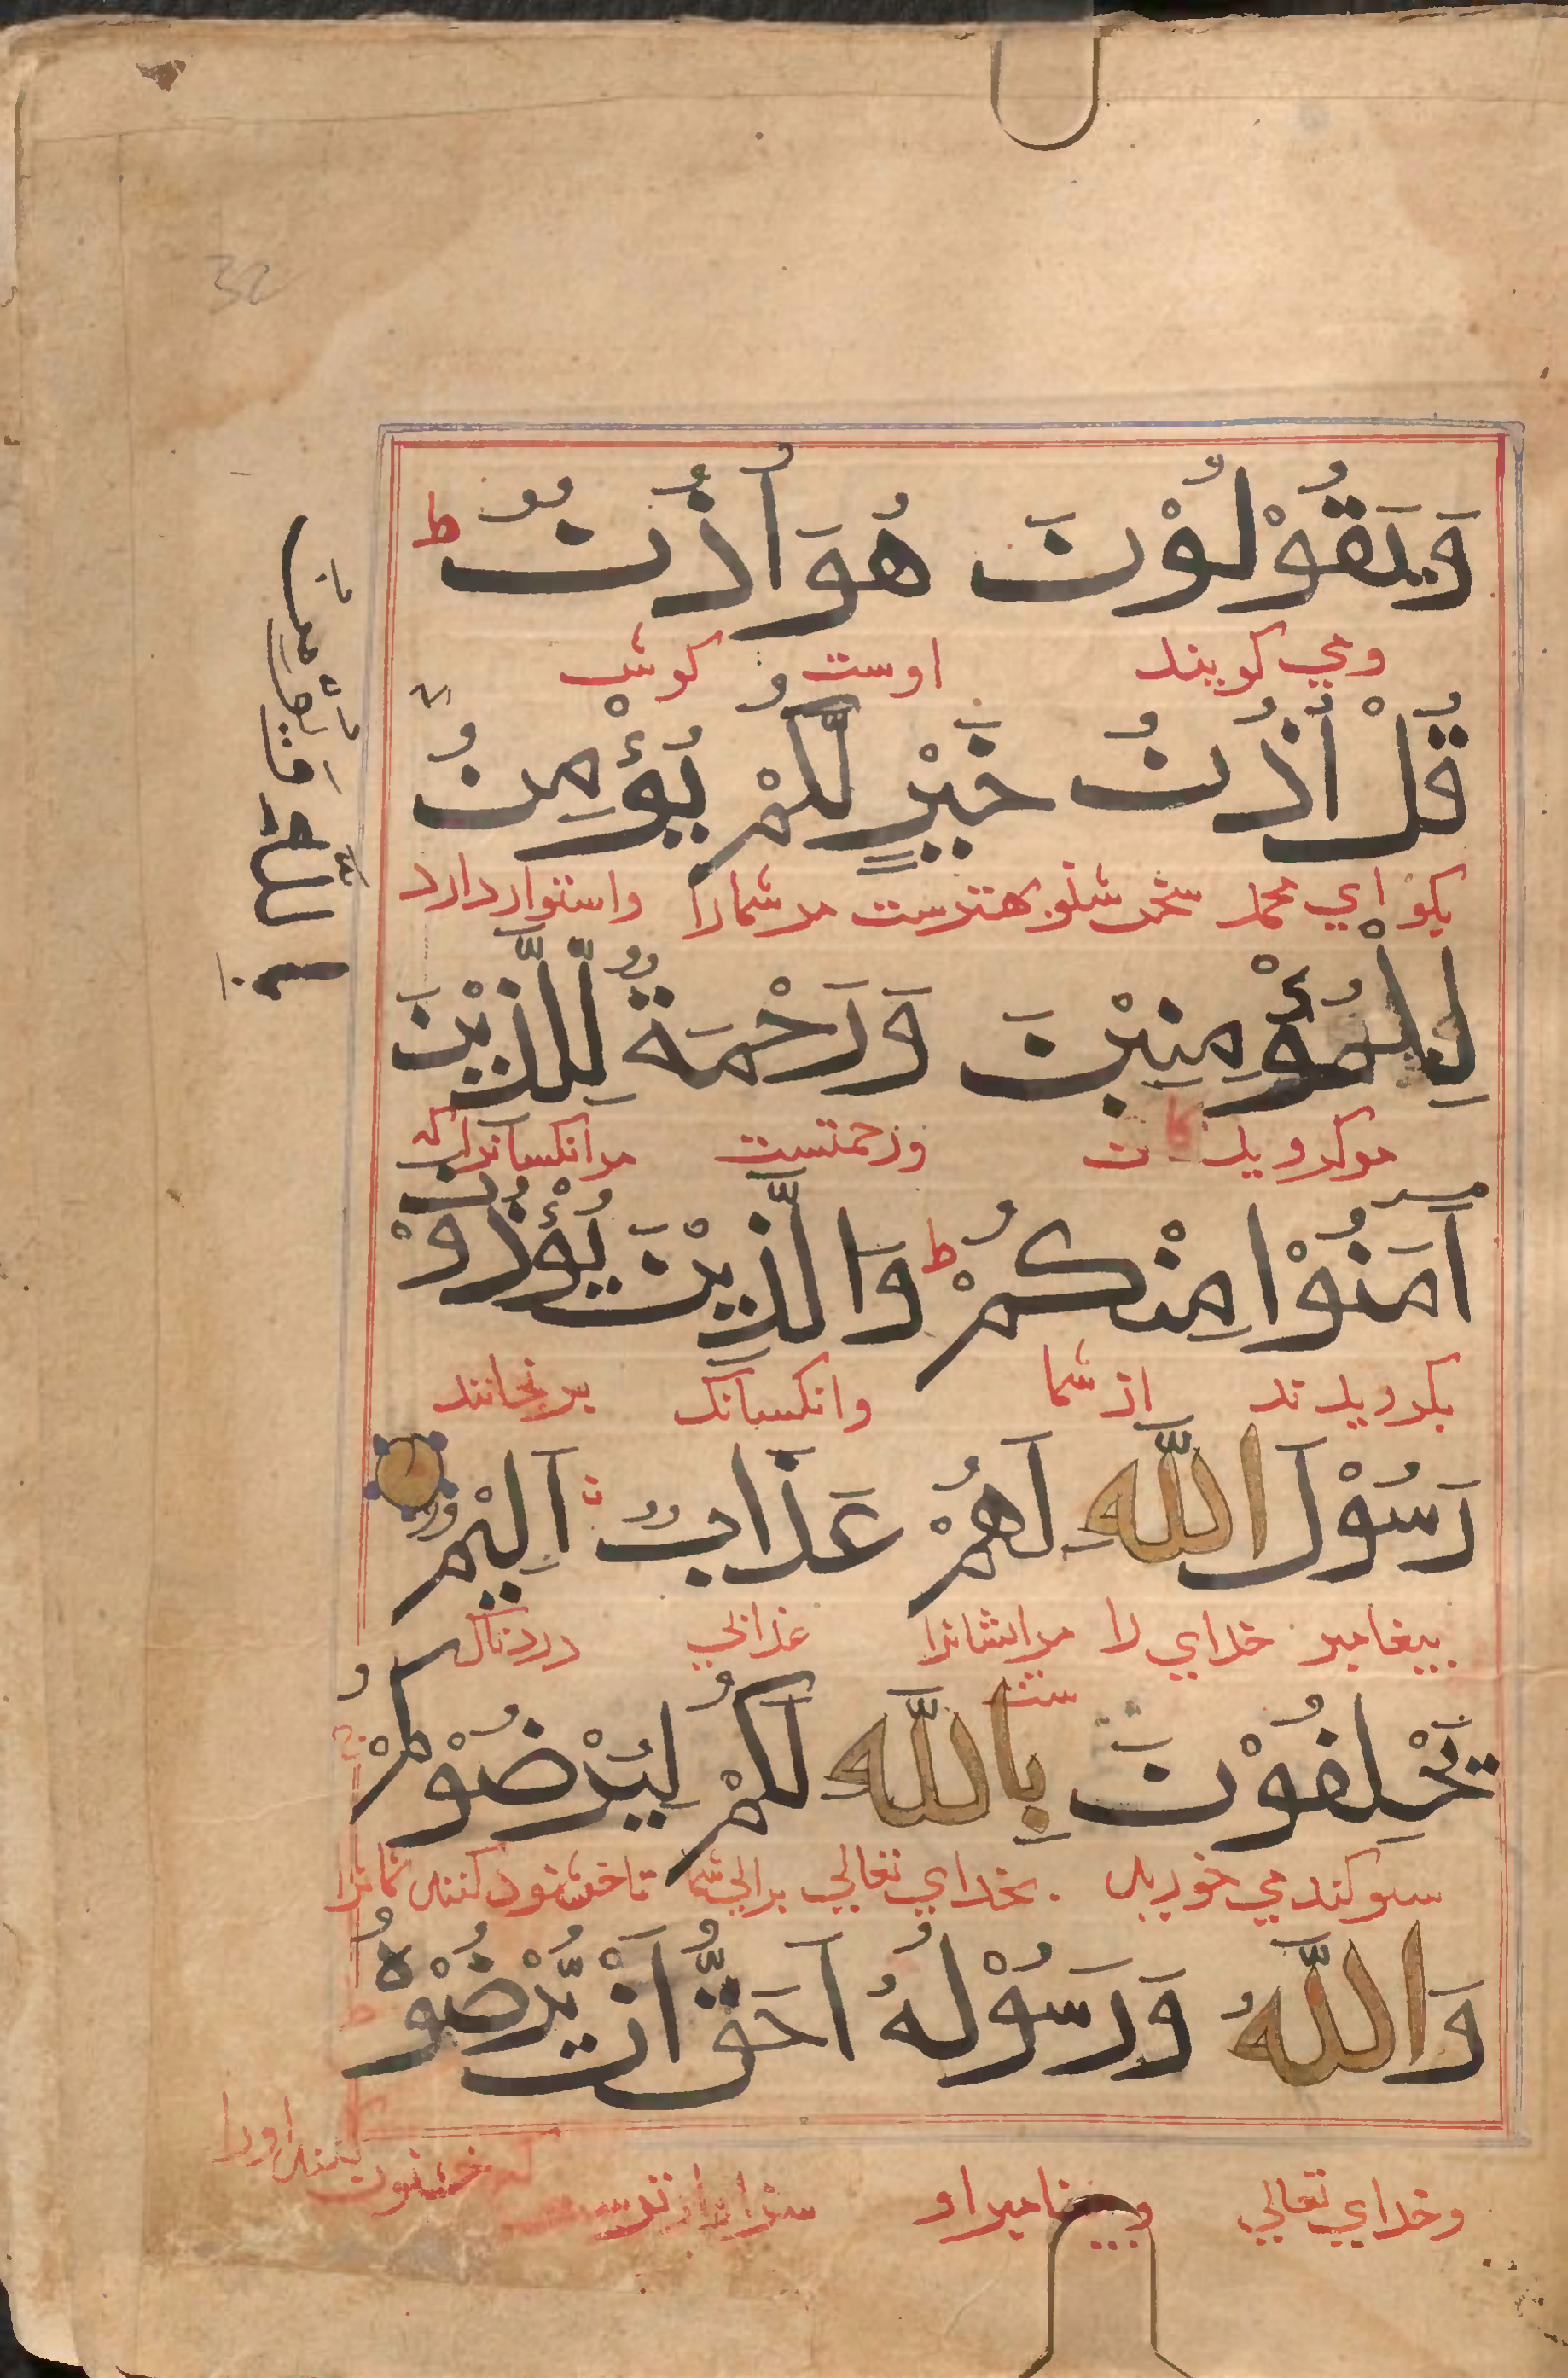 32
وَيَقُوْلُوْنَ هُوَ اُذُنٌ ط
ومي كويند اوست كوش
قُلْ اُذُنُ خَيْرٍ لَّكُمْ يُؤْمِنُ
بِاللّٰهِ وَيُؤْمِنُ
بكو اي محمد سخن شنو بهترست مر شمارا واستوار دارد
لِلْمُؤْمِنِيْنَ وَرَحْمَةٌ لِّلَّذِيْنَ
مر كرويد كا ن ورحمتست مر انكسانرا كه
اٰمَنُوْا مِنْكُمْ ط وَالَّذِيْنَ يُؤْذُوْنَ
بكرويد ند از شما وانكسانك برنجانند
رَسُوْلَ اللّٰهِ لَهُمْ عَذَابٌ اَلِيْمٌ
بيغامبر خداي را مر ايشانرا ست عذابي دردناك
يَحْلِفُوْنَ بِاللّٰهِ لَكُمْ لِيُرْضُوْكُمْ
سوكند مي خورند بخداي تعالي براي شما تا خشنود كنند شمانرا
وَاللّٰهُ وَرَسُوْلُهُ اَحَقُّ اَنْ يُّرْضُوْهُ
وخداي تعالي وبيغامبر او سزاوارترند كه خشنود كنند اورا